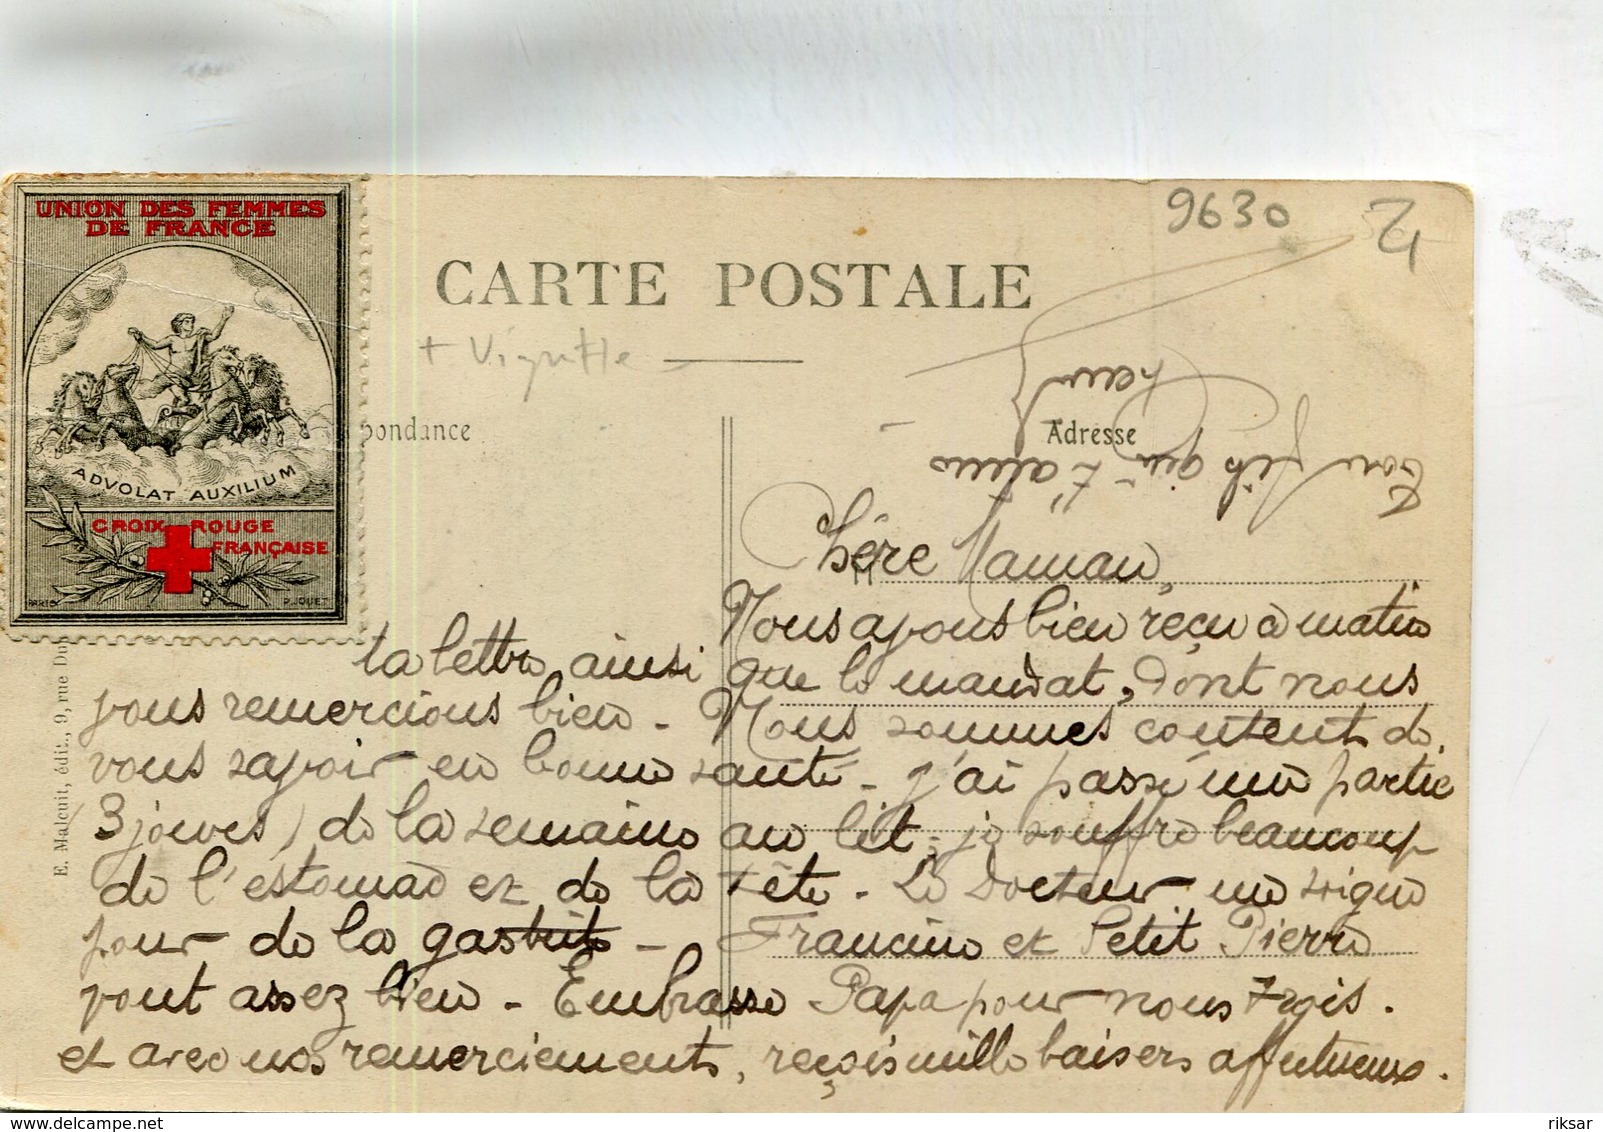 9630
UNION DES FEMMES
DE FRANCE
ADVOLAT AUXILIUM
CROIX ROUGE
FRANÇAISE
PARIS
D. JOUET
CARTE POSTALE
+ Vignette
pondance
Adresse
Ton fils qui t'aime
E. Malcuit, édit., 9, rue Du
Chère Maman,
Nous avons bien reçu ce matin
ta lettre, ainsi que le mandat, dont nous
vous remercions bien - Nous sommes contents de
vous savoir en bonne santé - J'ai passé une partie
(3 jours) de la semaine au lit ; je souffre beaucoup
de l'estomac et de la tête - Le Docteur me soigne
pour de la gastrite - Francine et Petit Pierre
vont assez bien - Embrasse Papa pour nous trois.
et avec nos remerciements, reçois mille baisers affectueux.
riksar